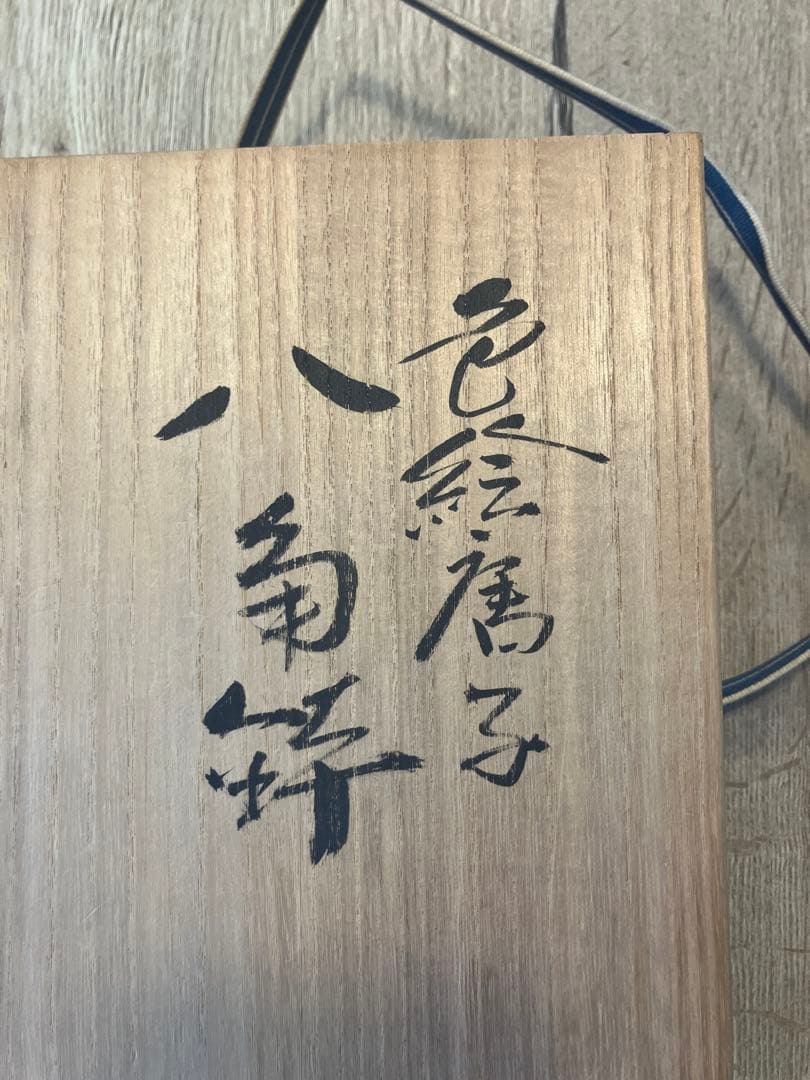 色絵唐子
八角鉢